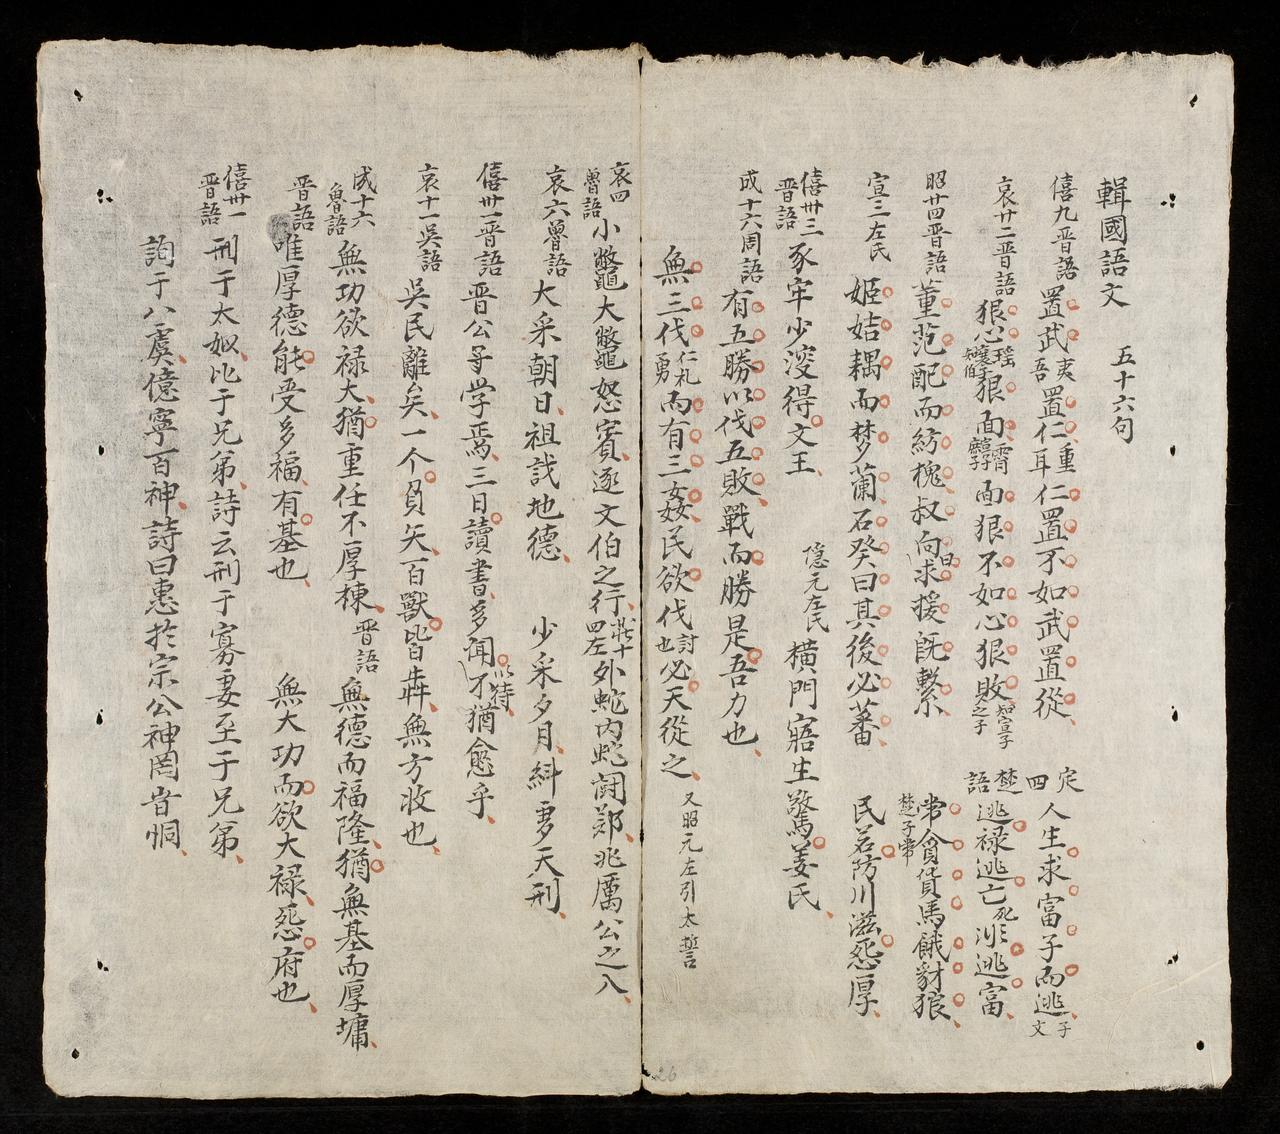 輯國語文 五十六句
僖九晋語 置武夷吾置仁重耳仁置不如武置從 定四 人生求富子而逃子文
哀廿二晋語 狠心瑤知襄子知伯狠面宵面狠不如心狠敗知宣子之子 楚語 逃禄逃亡死逃富
昭廿四晋語 董范配而紡槐叔向曰求援既繫 楚子常 常貪貨馬餓豺狼
宣三左氏 姬姞耦而梦蘭石癸曰其後必蕃 民若防川滋怨厚
僖卅三晋語 豕牢少溲得文王 隐元左氏 横門寤生驚姜氏
成十六周語 有五勝以伐五敗戰而勝是吾力也
無三伐仁礼勇而有三姦民欲伐討也必天從之 又昭元左引太誓
哀四魯語 小鼈大鼈怒賓逐文伯之行 莊十四左 外蛇内蛇闘郑兆厲公之入
哀六魯語 大采朝日祖識地德 少采夕月糾虔天刑
僖卅一晋語 晋公学焉三日讀書多闻以待不猶愈乎
哀十一吴語 吴民離矣一个負矢百獸皆犇無方收也
成十六魯語 無功欲禄大猶重任不厚棟 晋語 無德而福隆猶無基而厚墉
晋語 唯厚德能受多福有基也 無大功而欲大禄怨府也
僖卅一晋語 刑于太姒比于兄弟詩云刑于寡妻至于兄弟
詢于八虞億寧百神詩曰惠於宗公神罔峕恫
26